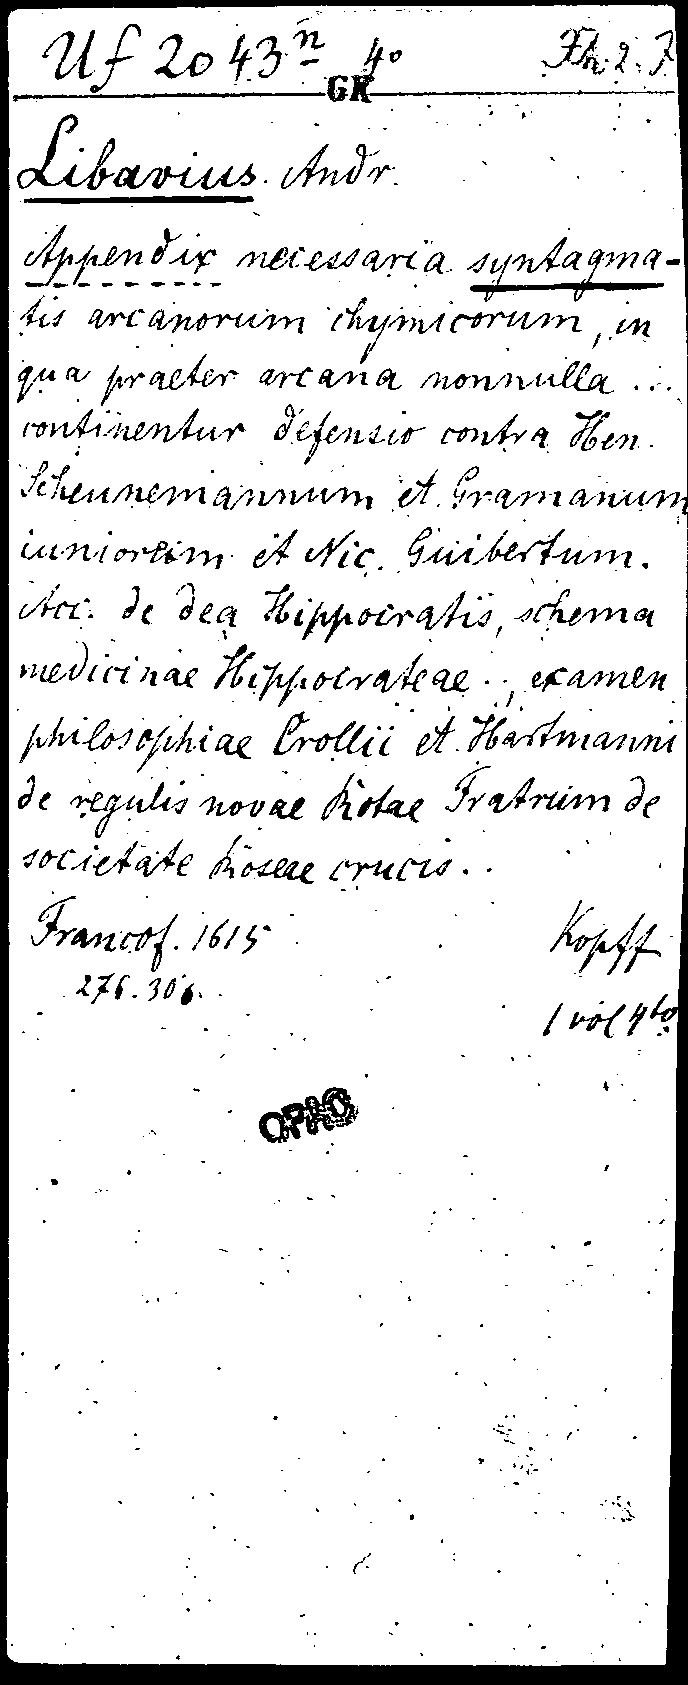 Uf 2043ⁿ 4°
GK
Libavius. Andr.
Appendix necessaria syntagma-
tis arcanorum chymicorum, in
qua praeter arcana nonnulla ...
continentur defensio contra Hen.
Scheunemannum et Gramanum
iuniorem et Nic. Guibertum.
Acc. de dea Hippocratis, schema
medicinae Hippocrateae .., examen
philosophiae Crollii et Hartmanni
de regulis novae Rotae Fratrum de
societate Roseae crucis..
Francof. 1615 Kopff
276. 306.
1 vol 4to